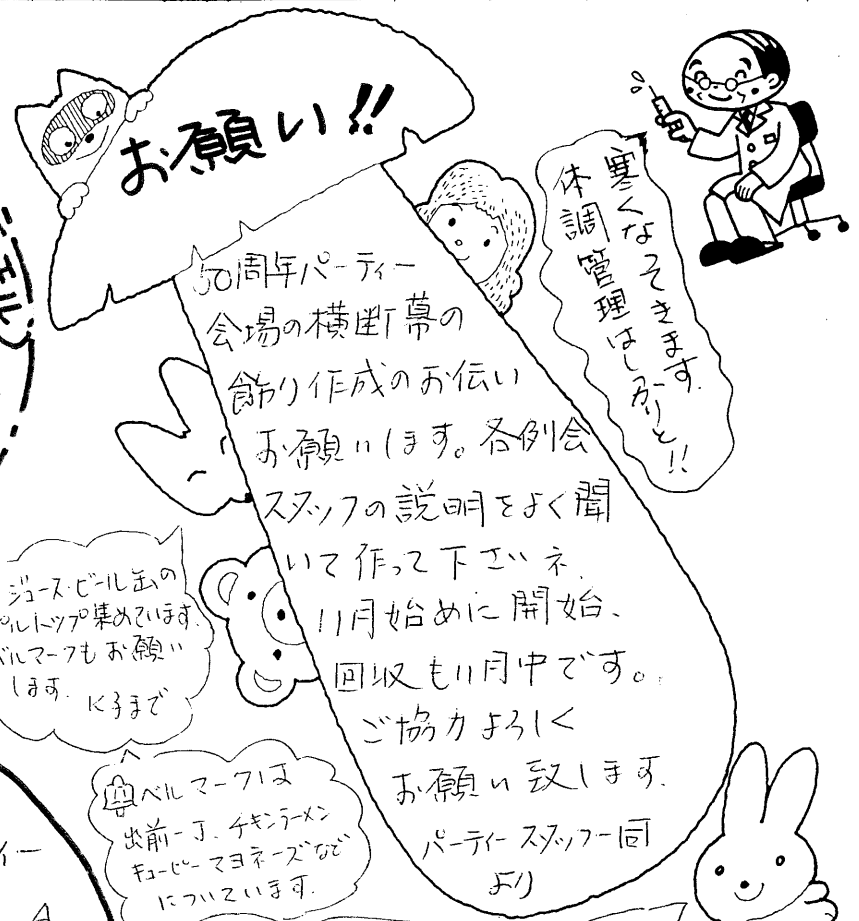 お願い!!
50周年パーティー
会場の横断幕の
飾り作成のお伝い
お願いします。各例会
スタッフの説明をよく聞
いて作って下さいネ、
11月始めに開始、
回収も11月中です。
ご協力よろしく
お願い致します。
パーティースタッフ一同
より
寒くなってきます。
体調管理はしっかりと!!
ジュース・ビール缶の
プルトップ集めています。
ベルマークもお願い
します。 K子まで
ベルマークは
出前一丁、チキンラーメン
キューピーマヨネーズなど
についています。